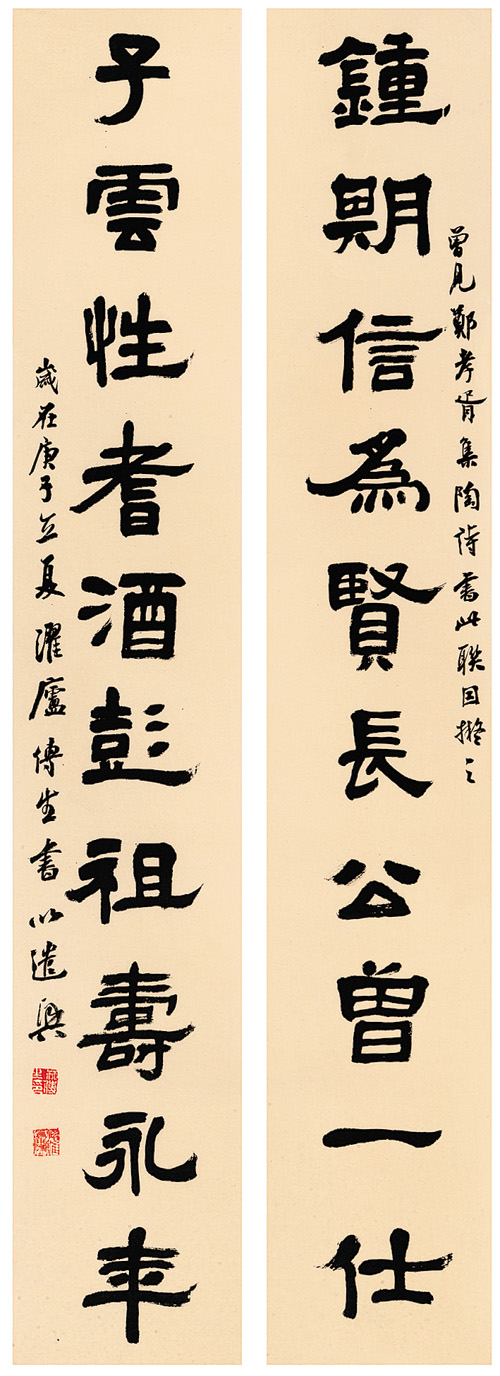 曾見鄭孝胥集陶詩書此聯因擬之
鍾期信為賢長公曾一仕
子雲性耆酒彭祖壽永年
歲在庚子立夏濯廬生書以遣興